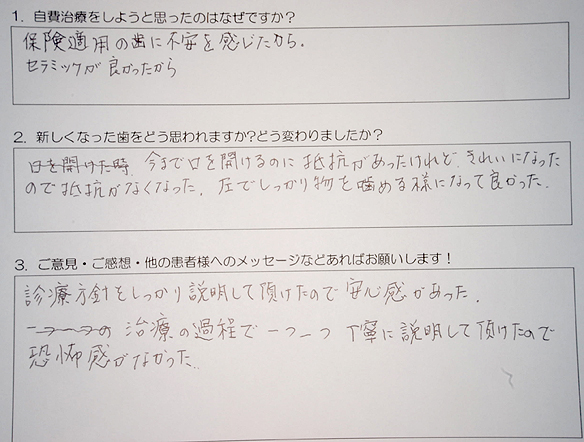 1. 自費治療をしようと思ったのはなぜですか？
保険適用の歯に不安を感じたから。
セラミックが良かったから
2. 新しくなった歯をどう思われますか?どう変わりましたか？
口を開けた時、今まで口を開けるのに抵抗があったけれど、きれいになった
ので抵抗がなくなった。左でしっかり物を噛める様になって良かった。
3. ご意見・ご感想・他の患者様へのメッセージなどあればお願いします！
診療方針をしっかり説明して頂けたので安心感があった。
一つ一つの 治療の過程で一つ一つ丁寧に説明して頂けたので
恐怖感がなかった。